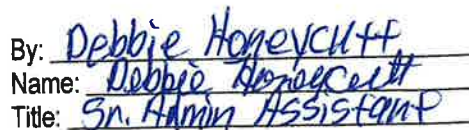 By: Debbie Honeycutt
Name: Debbie Honeycutt
Title: Sr. Admin Assistant